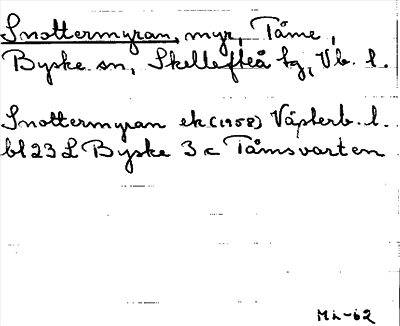 Snottermyran, myr, Tåme,
Byske sn, Skellefteå tg, Vb. l.
Snottermyran ek (1958) Västerb. l.
bl 23 L Byske 3 c Tåmsvarten
Mh-62